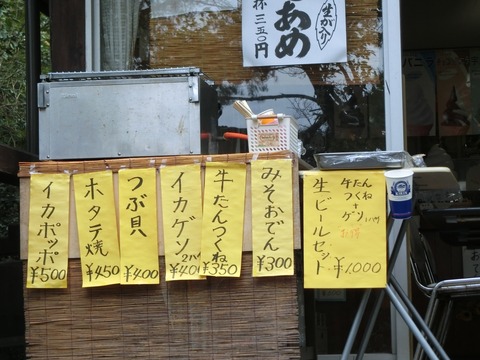 あめ
生が入り
一杯三五〇円
イカポッポ
¥500
ホタテ焼
¥450
つぶ貝
¥400
イカゲソ
2パイ
¥400
牛たんつくね
¥350
みそおでん
¥300
牛たん
つくね
+
ゲソ2パイ
生ビールセット
¥1,000